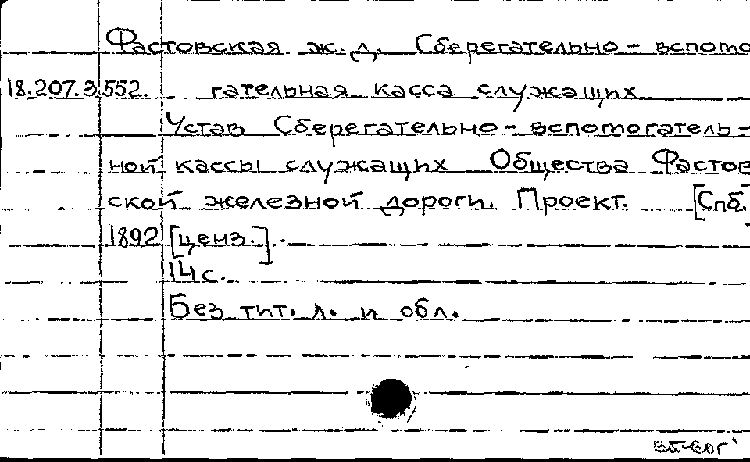 Фастовская ж. д. Сберегательно-вспомо
18.207.3.552. гательная касса служащих
Устав Сберегательно-вспомогатель-
ной кассы служащих Общества Фастов
ской железной дороги. Проект. [Спб.
1892 [ценз.].
14 с.
Без тит. л. и обл.